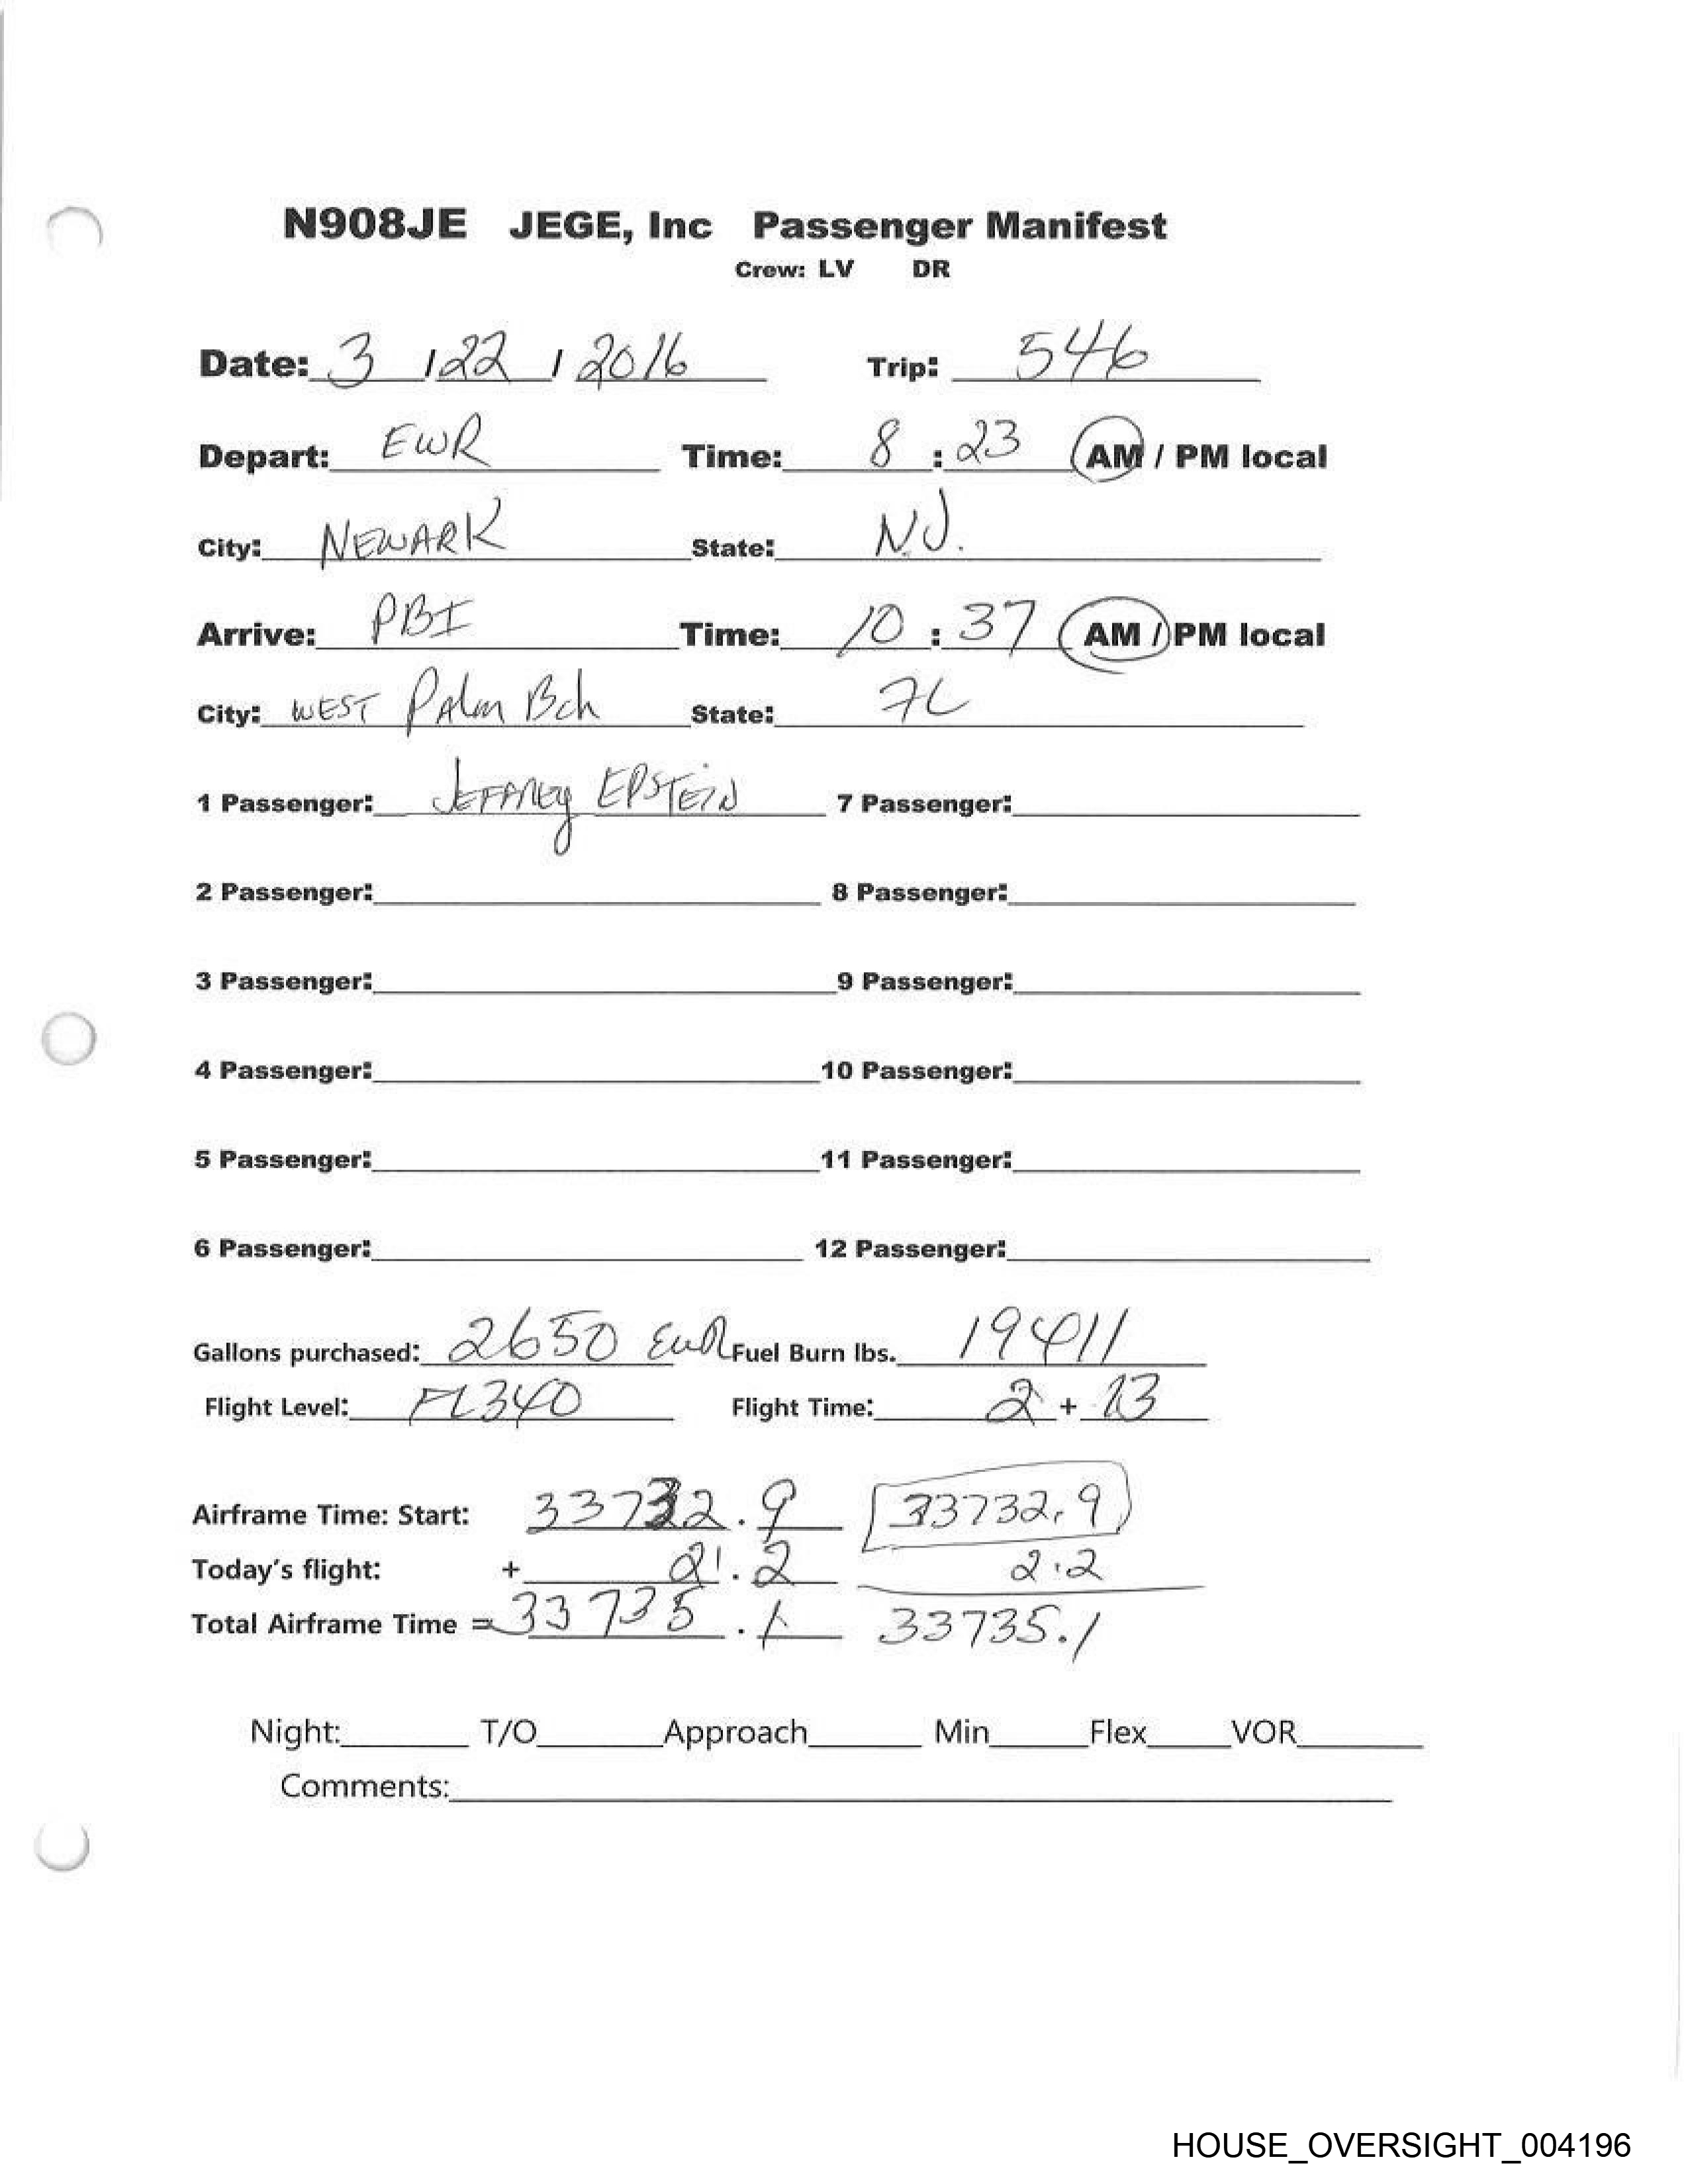 N908JE JEGE, Inc Passenger Manifest
Crew: LV DR
Date: 3 / 22 / 2016 Trip: 546
Depart: EWR Time: 8 : 23 AM / PM local
City: NEWARK State: N.J.
Arrive: PBI Time: 10 : 37 AM / PM local
City: WEST Palm Bch State: FL
1 Passenger: JEFFREY EPSTEIN 7 Passenger:
2 Passenger: 8 Passenger:
3 Passenger: 9 Passenger:
4 Passenger: 10 Passenger:
5 Passenger: 11 Passenger:
6 Passenger: 12 Passenger:
Gallons purchased: 2650 EWR Fuel Burn lbs. 19411
Flight Level: FL340 Flight Time: 2 + 13
Airframe Time: Start: 33732.9 33732.9
Today's flight: + 2.2 2.2
Total Airframe Time = 33735.1 33735.1
Night: T/O Approach Min Flex VOR
Comments:
HOUSE_OVERSIGHT_004196